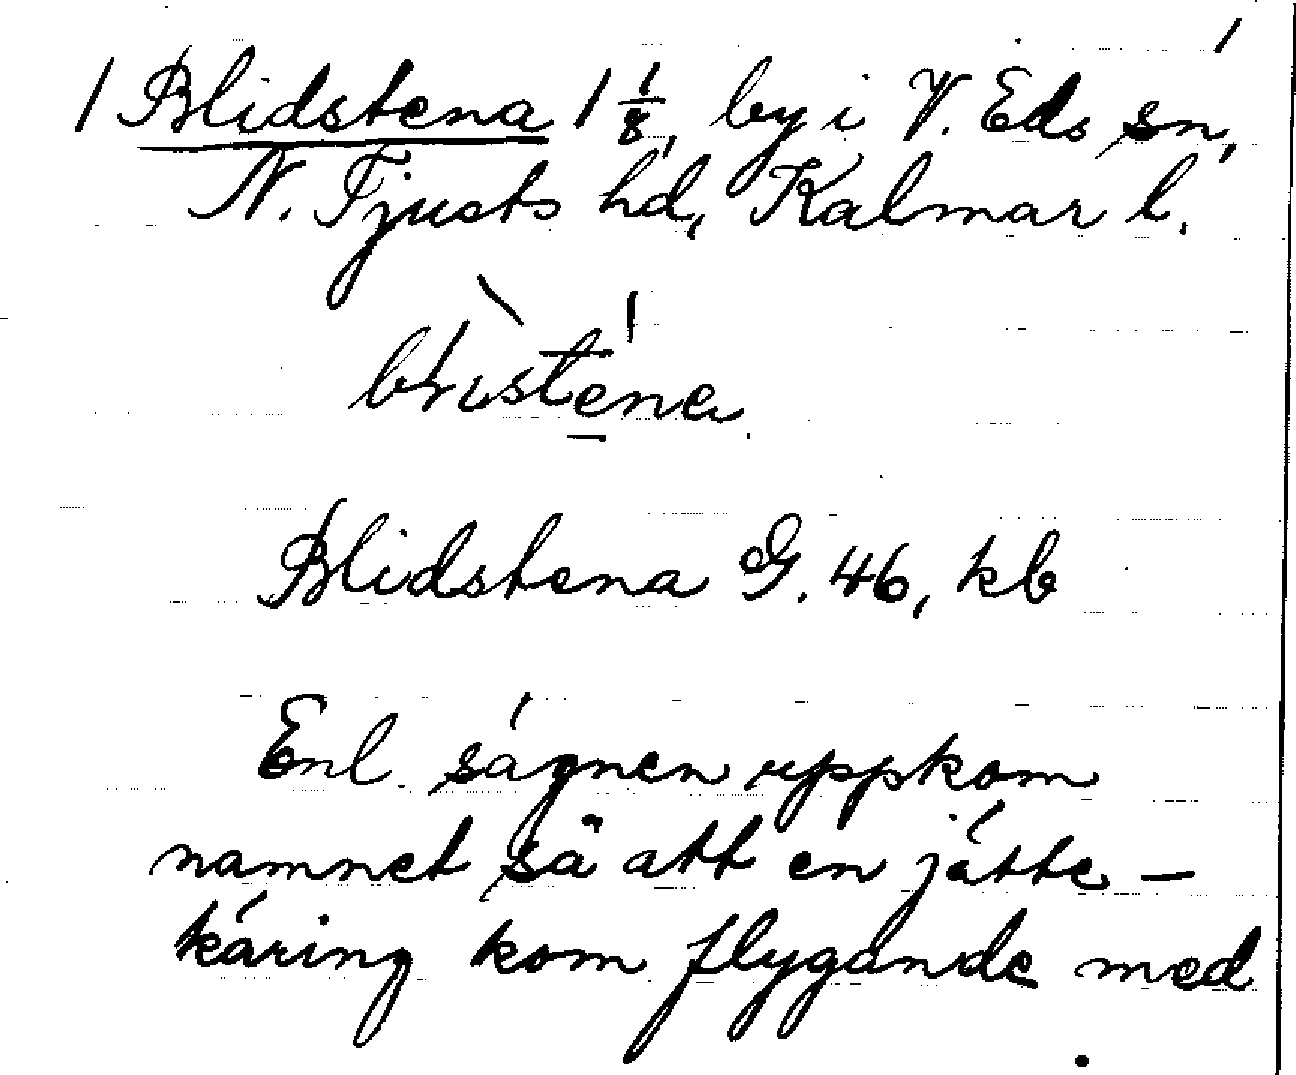 1 Blidstena 1 1/8, by i V. Eds sn,
N. Tjusts hd, Kalmar l.
Blidstena G. 46, kb
Enl. sägnen uppkom
namnet så att en jätte-
käring kom flygande med